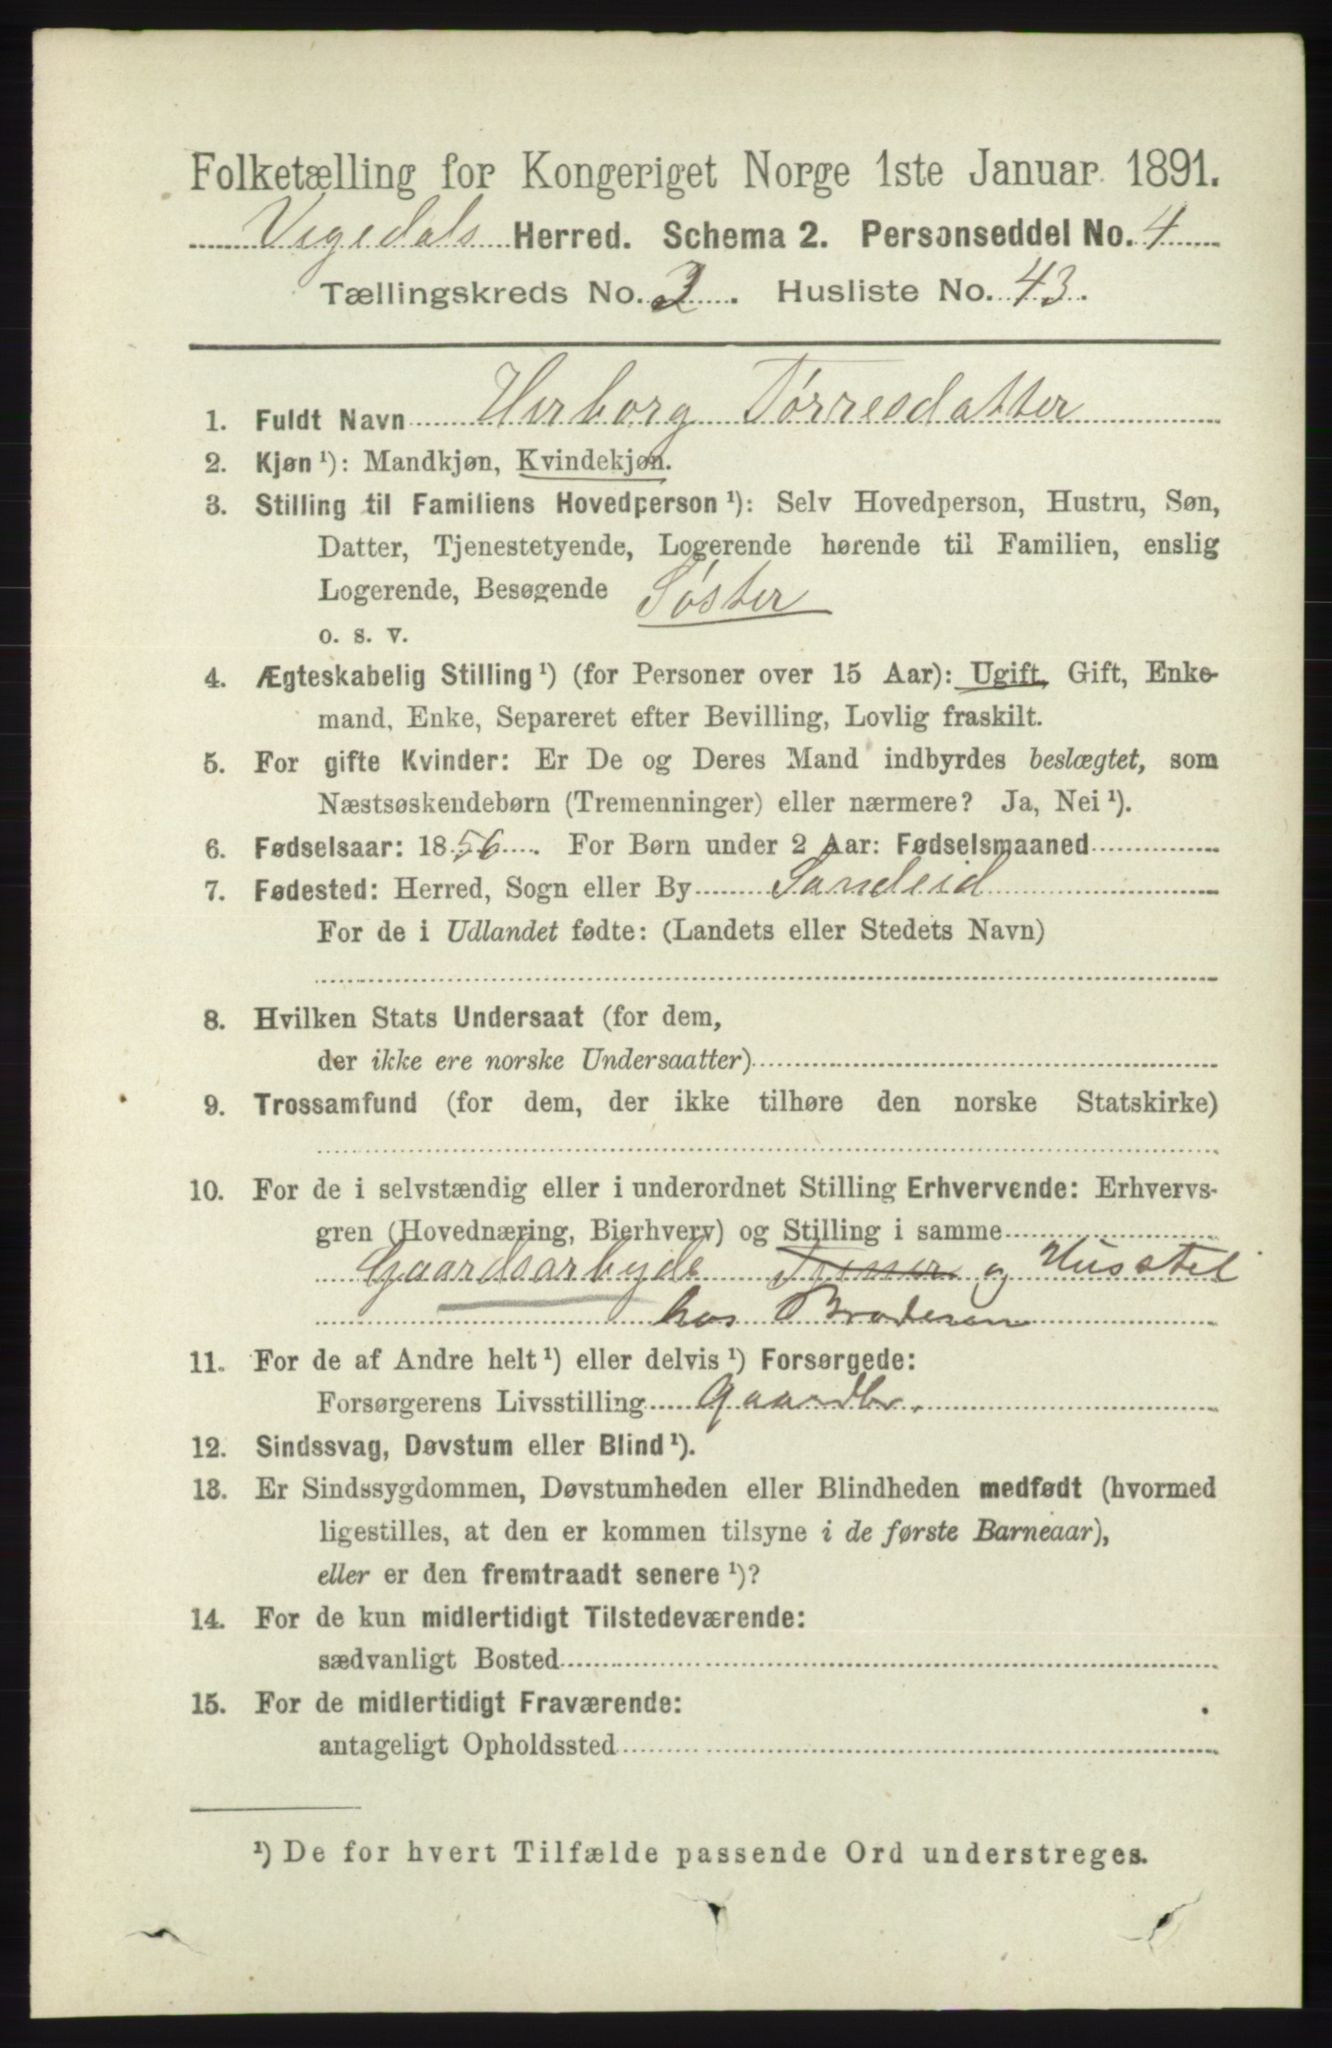 Folketælling for Kongeriget Norge 1ste Januar 1891.
Vigedals Herred. Schema 2. Personseddel No. 4
Tællingskreds No. 3. Husliste No. 43.
1. Fuldt Navn Herborg Tørresdatter
2. Kjøn ¹): Mandkjøn, Kvindekjøn.
3. Stilling til Familiens Hovedperson ¹): Selv Hovedperson, Hustru, Søn,
Datter, Tjenestetyende, Logerende hørende til Familien, enslig
Logerende, Besøgende Søster
o. s. v.
4. Ægteskabelig Stilling ¹) (for Personer over 15 Aar): Ugift, Gift, Enke-
mand, Enke, Separeret efter Bevilling, Lovlig fraskilt.
5. For gifte Kvinder: Er De og Deres Mand indbyrdes beslægtet, som
Næstsøskendebørn (Tremenninger) eller nærmere? Ja, Nei ¹).
6. Fødselsaar: 1856. For Børn under 2 Aar: Fødselsmaaned
7. Fødested: Herred, Sogn eller By Sandeid
For de i Udlandet fødte: (Landets eller Stedets Navn)
8. Hvilken Stats Undersaat (for dem,
der ikke ere norske Undersaatter)
9. Trossamfund (for dem, der ikke tilhøre den norske Statskirke)
10. For de i selvstændig eller i underordnet Stilling Erhvervende: Erhvervs-
gren (Hovednæring, Bierhverv) og Stilling i samme
Gaardsarbyde Tjener og Husstel
hos Broderen
11. For de af Andre helt ¹) eller delvis ¹) Forsørgede:
Forsørgerens Livsstilling Gaardbr.
12. Sindssvag, Døvstum eller Blind ¹).
13. Er Sindssygdommen, Døvstumheden eller Blindheden medfødt (hvormed
ligestilles, at den er kommen tilsyne i de første Barneaar),
eller er den fremtraadt senere ¹)?
14. For de kun midlertidigt Tilstedeværende:
sædvanligt Bosted
15. For de midlertidigt Fraværende:
antageligt Opholdssted
¹) De for hvert Tilfælde passende Ord understreges.